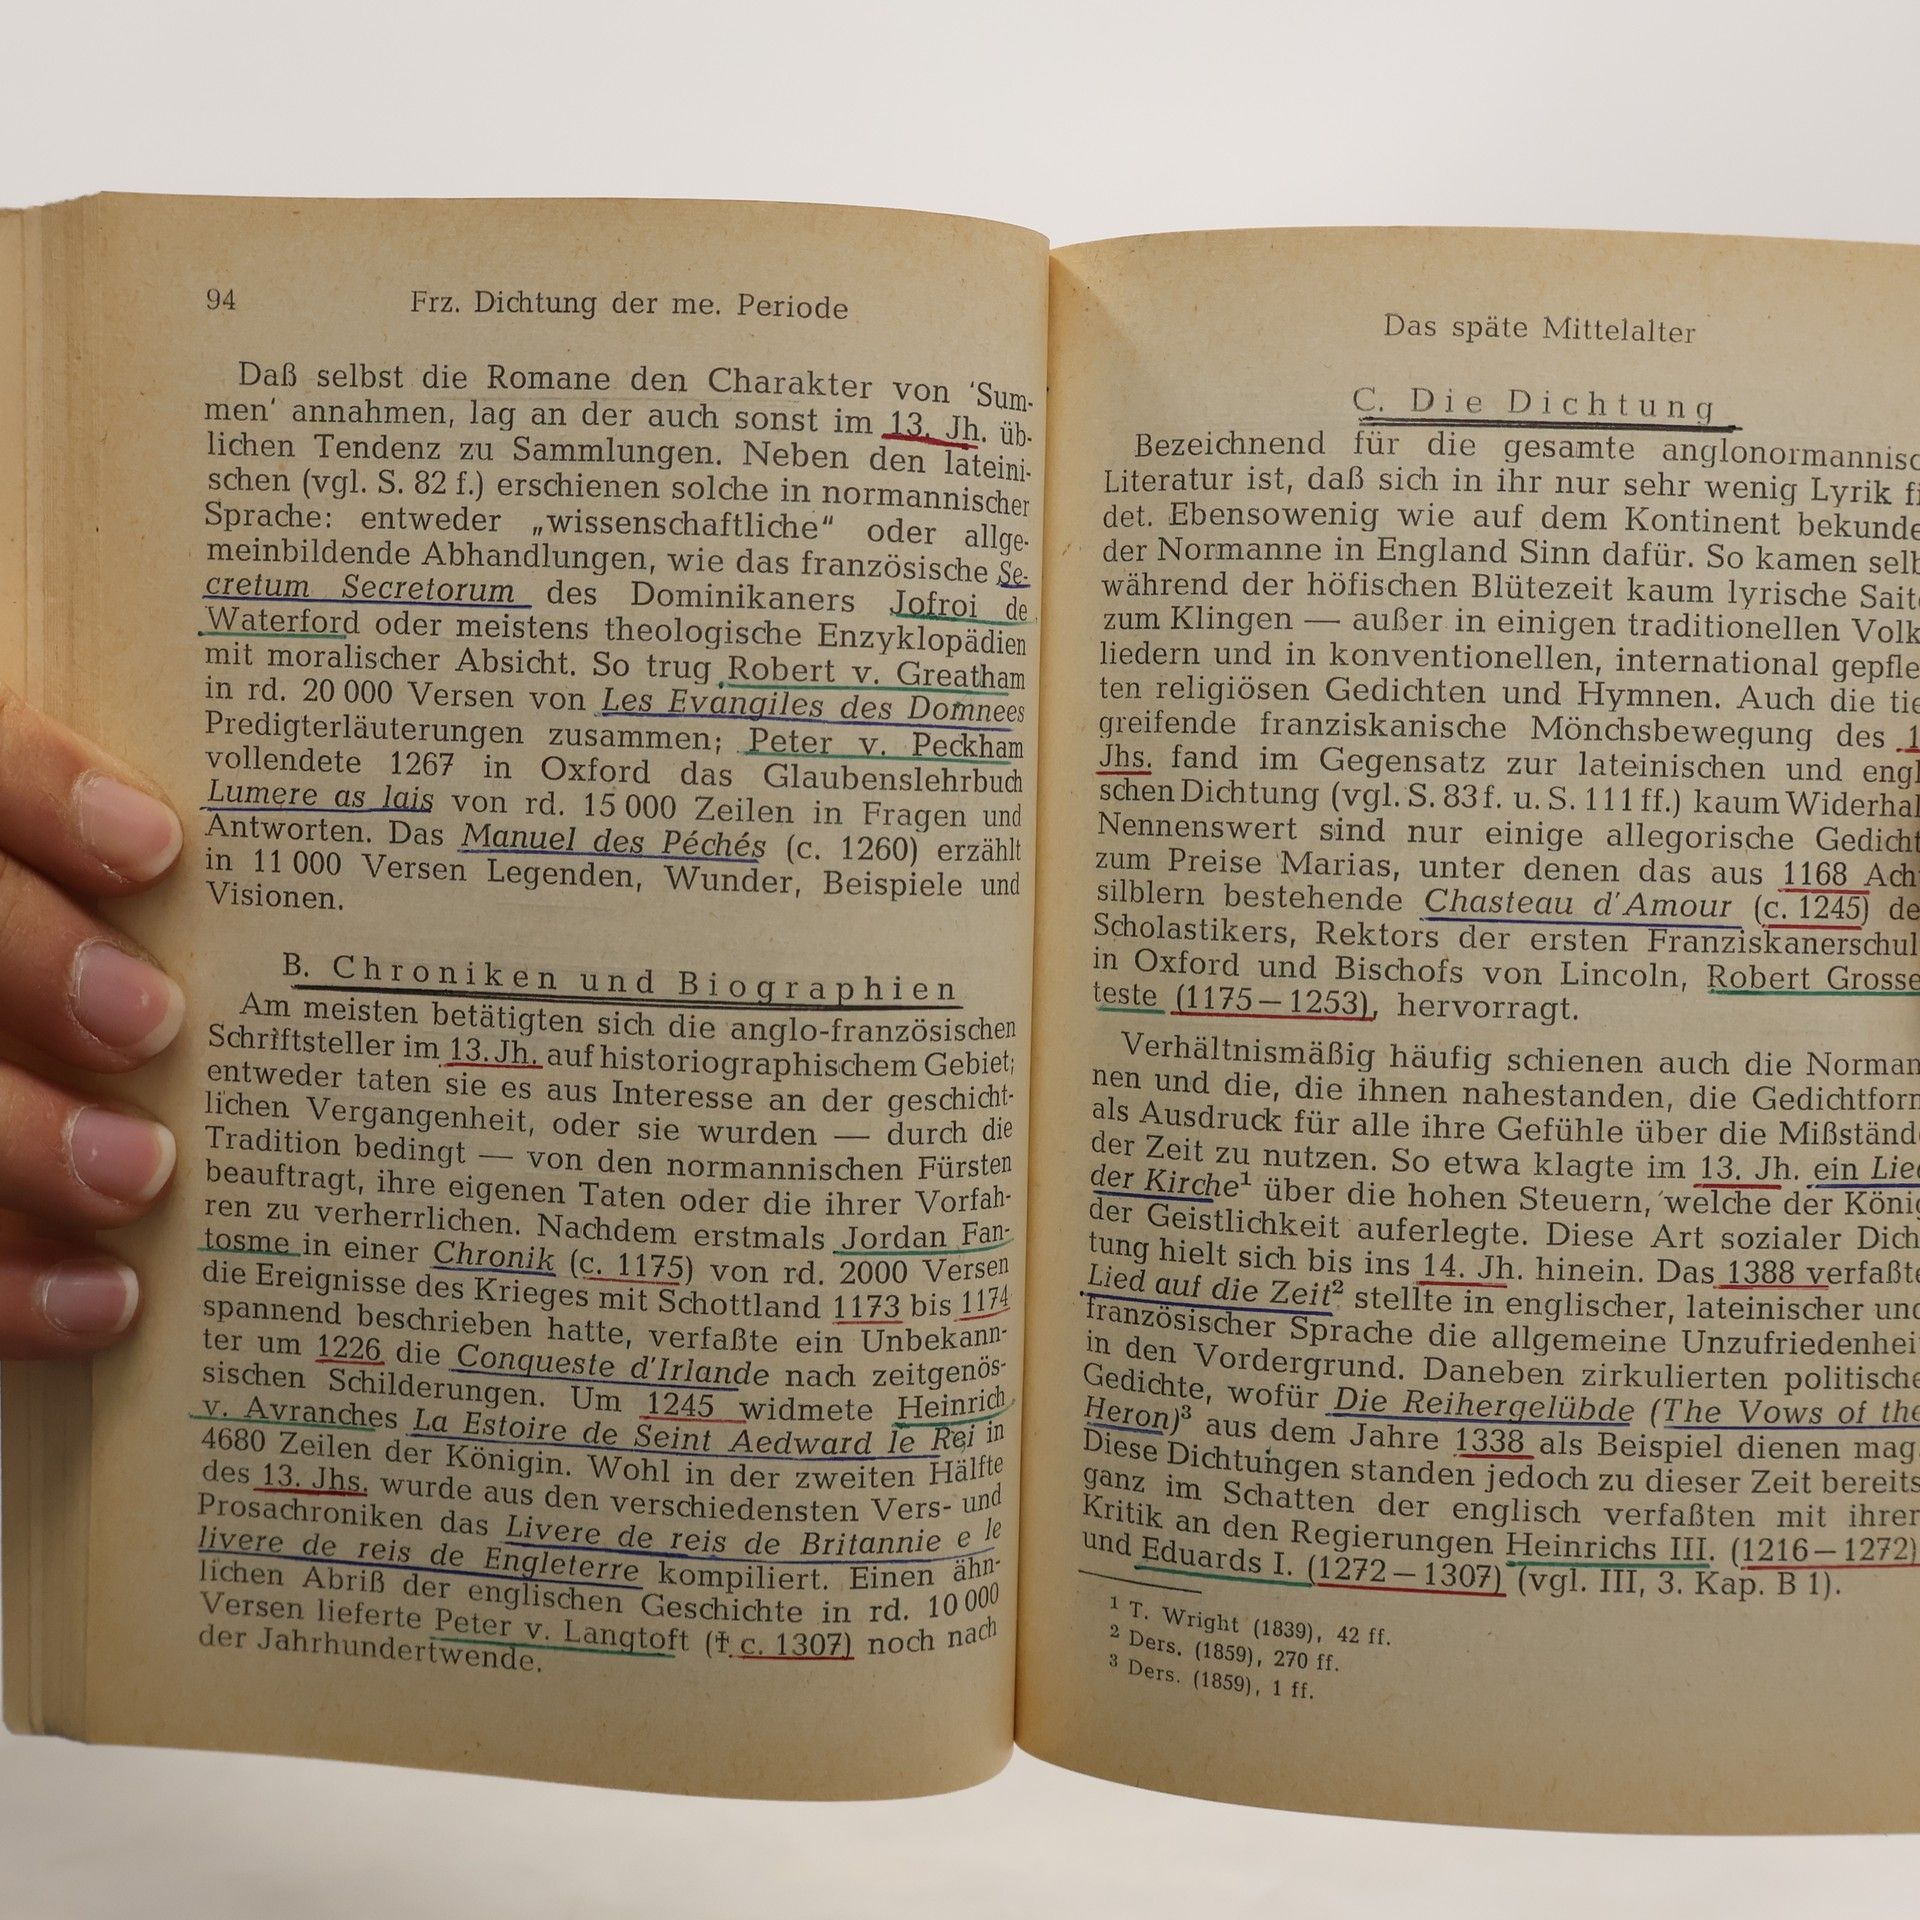 94
Frz. Dichtung der me. Periode
Daß selbst die Romane den Charakter von 'Sum-
men' annahmen, lag an der auch sonst im 13. Jh. üb-
lichen Tendenz zu Sammlungen. Neben den lateini-
schen (vgl. S. 82 f.) erschienen solche in normannischer
Sprache: entweder „wissenschaftliche" oder allge-
meinbildende Abhandlungen, wie das französische Se-
cretum Secretorum des Dominikaners Jofroi de
Waterford oder meistens theologische Enzyklopädien
mit moralischer Absicht. So trug Robert v. Greatham
in rd. 20 000 Versen von Les Evangiles des Domnees
Predigterläuterungen zusammen; Peter v. Peckham
vollendete 1267 in Oxford das Glaubenslehrbuch
Lumere as lais von rd. 15 000 Zeilen in Fragen und
Antworten. Das Manuel des Péchés (c. 1260) erzählt
in 11 000 Versen Legenden, Wunder, Beispiele und
Visionen.
B. Chroniken und Biographien
Am meisten betätigten sich die anglo-französischen
Schriftsteller im 13. Jh. auf historiographischem Gebiet;
entweder taten sie es aus Interesse an der geschicht-
lichen Vergangenheit, oder sie wurden — durch die
Tradition bedingt — von den normannischen Fürsten
beauftragt, ihre eigenen Taten oder die ihrer Vorfah-
ren zu verherrlichen. Nachdem erstmals Jordan Fan-
tosme in einer Chronik (c. 1175) von rd. 2000 Versen
die Ereignisse des Krieges mit Schottland 1173 bis 1174
spannend beschrieben hatte, verfaßte ein Unbekann-
ter um 1226 die Conqueste d'Irlande nach zeitgenös-
sischen Schilderungen. Um 1245 widmete Heinrich
v. Avranches La Estoire de Seint Aedward le Rei in
4680 Zeilen der Königin. Wohl in der zweiten Hälfte
des 13. Jhs. wurde aus den verschiedensten Vers- und
Prosachroniken das Livere de reis de Britannie e le
livere de reis de Engleterre kompiliert. Einen ähn-
lichen Abriß der englischen Geschichte in rd. 10 000
Versen lieferte Peter v. Langtoft († c. 1307) noch nach
der Jahrhundertwende.
Das späte Mittelalter
C. Die Dichtung
Bezeichnend für die gesamte anglonormannisc
Literatur ist, daß sich in ihr nur sehr wenig Lyrik fi
det. Ebensowenig wie auf dem Kontinent bekunde
der Normanne in England Sinn dafür. So kamen selb
während der höfischen Blütezeit kaum lyrische Saite
zum Klingen — außer in einigen traditionellen Volk
liedern und in konventionellen, international gepfle
ten religiösen Gedichten und Hymnen. Auch die tie
greifende franziskanische Mönchsbewegung des 1
Jhs. fand im Gegensatz zur lateinischen und engl
schen Dichtung (vgl. S. 83 f. u. S. 111 ff.) kaum Widerhal
Nennenswert sind nur einige allegorische Gedicht
zum Preise Marias, unter denen das aus 1168 Ach
silblern bestehende Chasteau d'Amour (c. 1245) de
Scholastikers, Rektors der ersten Franziskanerschul
in Oxford und Bischofs von Lincoln, Robert Grosse
teste (1175—1253), hervorragt.
Verhältnismäßig häufig schienen auch die Norman
nen und die, die ihnen nahestanden, die Gedichtform
als Ausdruck für alle ihre Gefühle über die Mißstände
der Zeit zu nutzen. So etwa klagte im 13. Jh. ein Lied
der Kirche¹ über die hohen Steuern, welche der König
der Geistlichkeit auferlegte. Diese Art sozialer Dich
tung hielt sich bis ins 14. Jh. hinein. Das 1388 verfaßte
Lied auf die Zeit² stellte in englischer, lateinischer und
französischer Sprache die allgemeine Unzufriedenheit
in den Vordergrund. Daneben zirkulierten politische
Gedichte, wofür Die Reihergelübde (The Vows of the
Heron)³ aus dem Jahre 1338 als Beispiel dienen mag.
Diese Dichtungen standen jedoch zu dieser Zeit bereits
ganz im Schatten der englisch verfaßten mit ihrer
Kritik an den Regierungen Heinrichs III. (1216—1272)
und Eduards I. (1272—1307) (vgl. III, 3. Kap. B 1).
¹ T. Wright (1839), 42 ff.
² Ders. (1859), 270 ff.
³ Ders. (1859), 1 ff.